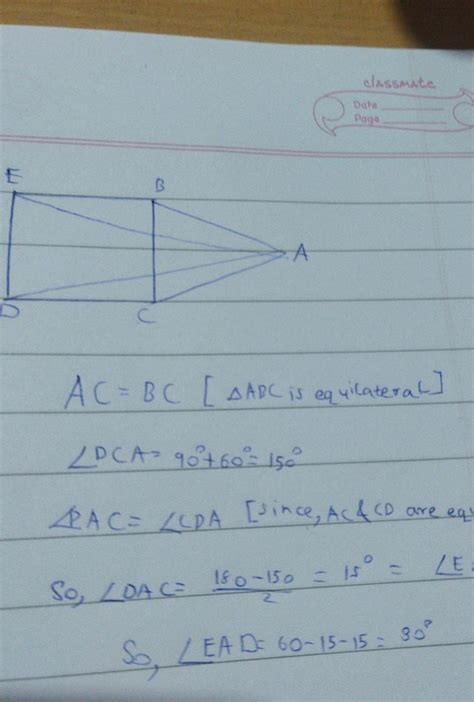 classmate
Date
Page
E
B
A
D
C
AC = BC [△ABC is equilateral]
∠DCA = 90° + 60° = 150°
∠DAC = ∠CDA [since, AC & CD are equ
So, ∠DAC = 180 - 150 / 2 = 15° = ∠E
So, ∠EAD = 60 - 15 - 15 = 30°